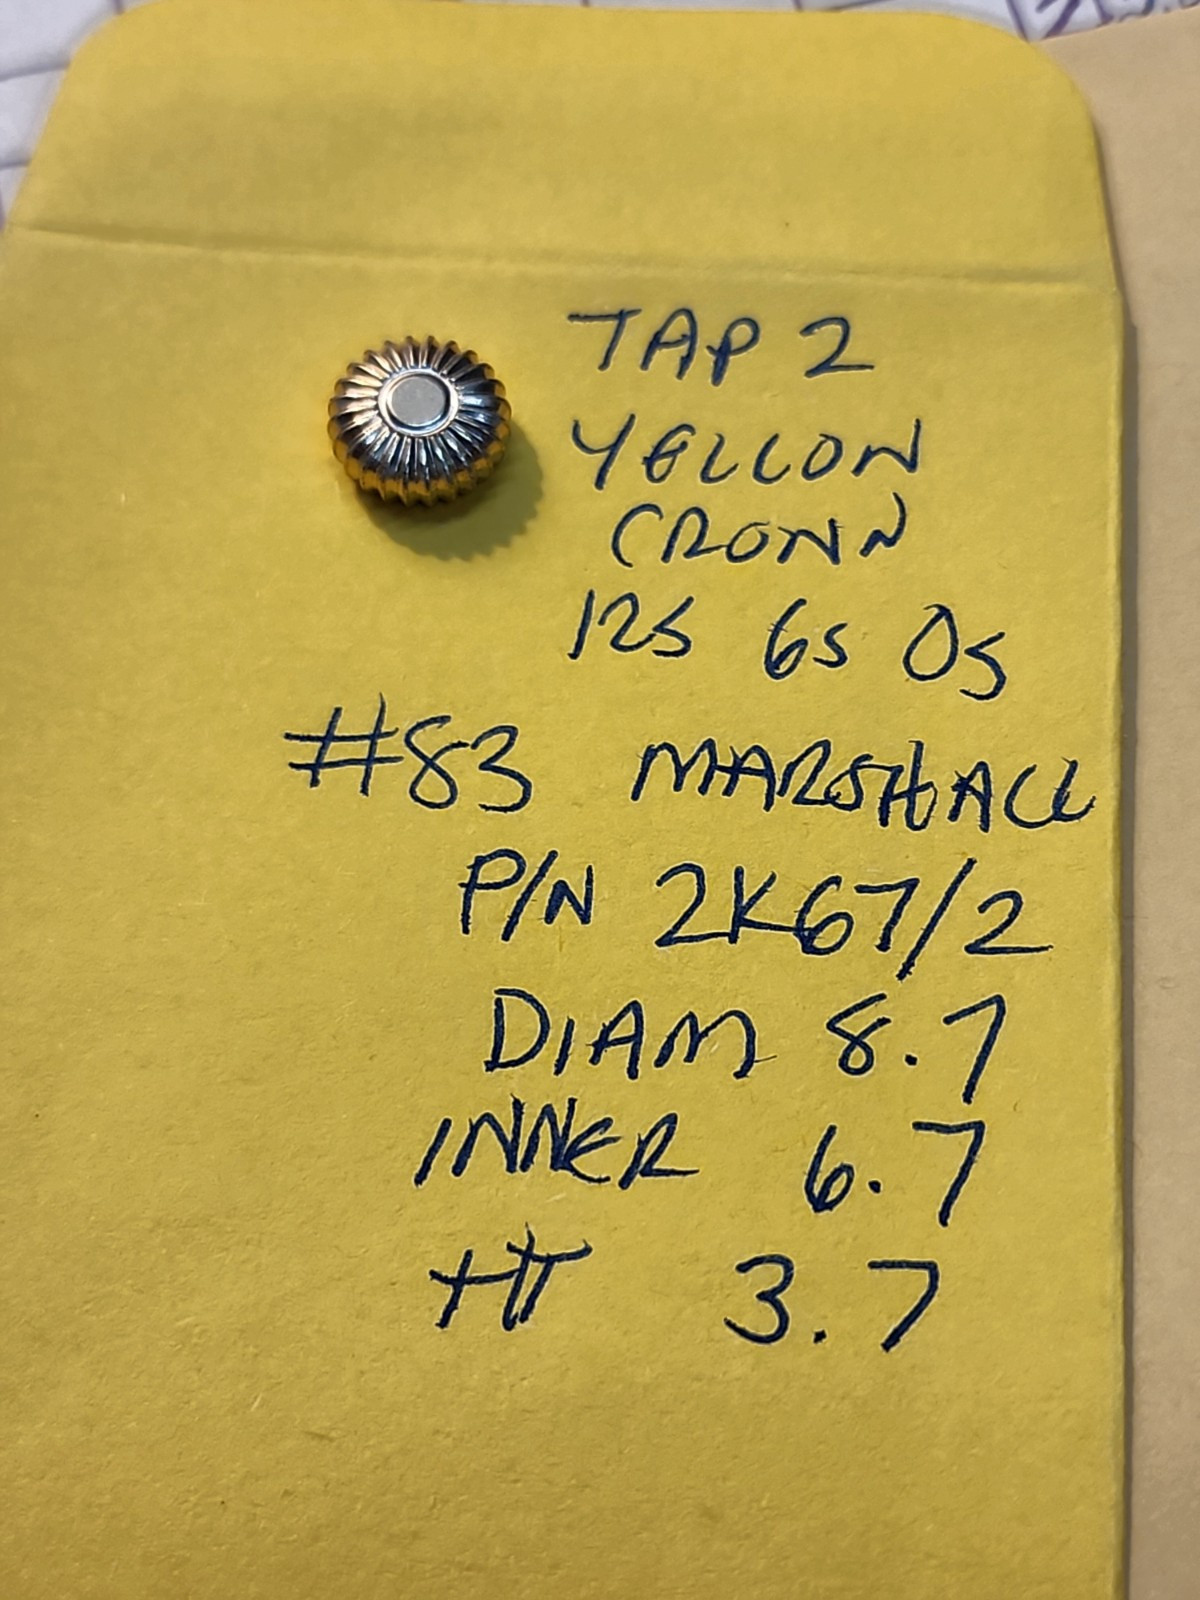 TAP 2
YELLOW
CROWN
12S 6S 0S
#83 MARSHALL
P/N 2K67/2
DIAM 8.7
INNER 6.7
HT 3.7